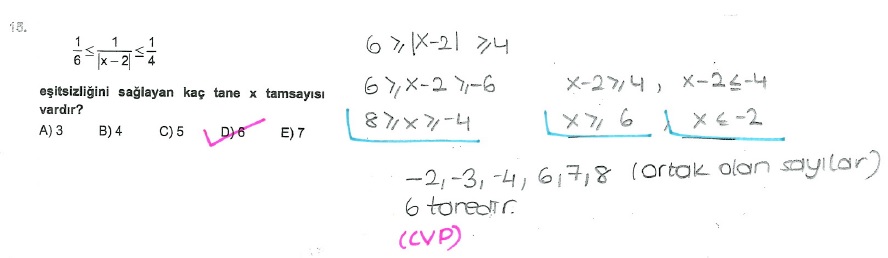 13.
1/6 ≤ 1/|x − 2| ≤ 1/4
eşitsizliğini sağlayan kaç tane x tamsayısı
vardır?
A) 3 B) 4 C) 5 D) 6 E) 7
6 ≥ |x-2| ≥ 4
6 ≥ x-2 ≥ -6
8 ≥ x ≥ -4
x-2 ≥ 4, x-2 ≤ -4
x ≥ 6, x ≤ -2
-2, -3, -4, 6, 7, 8 (ortak olan sayılar)
6 tanedir.
(CVP)